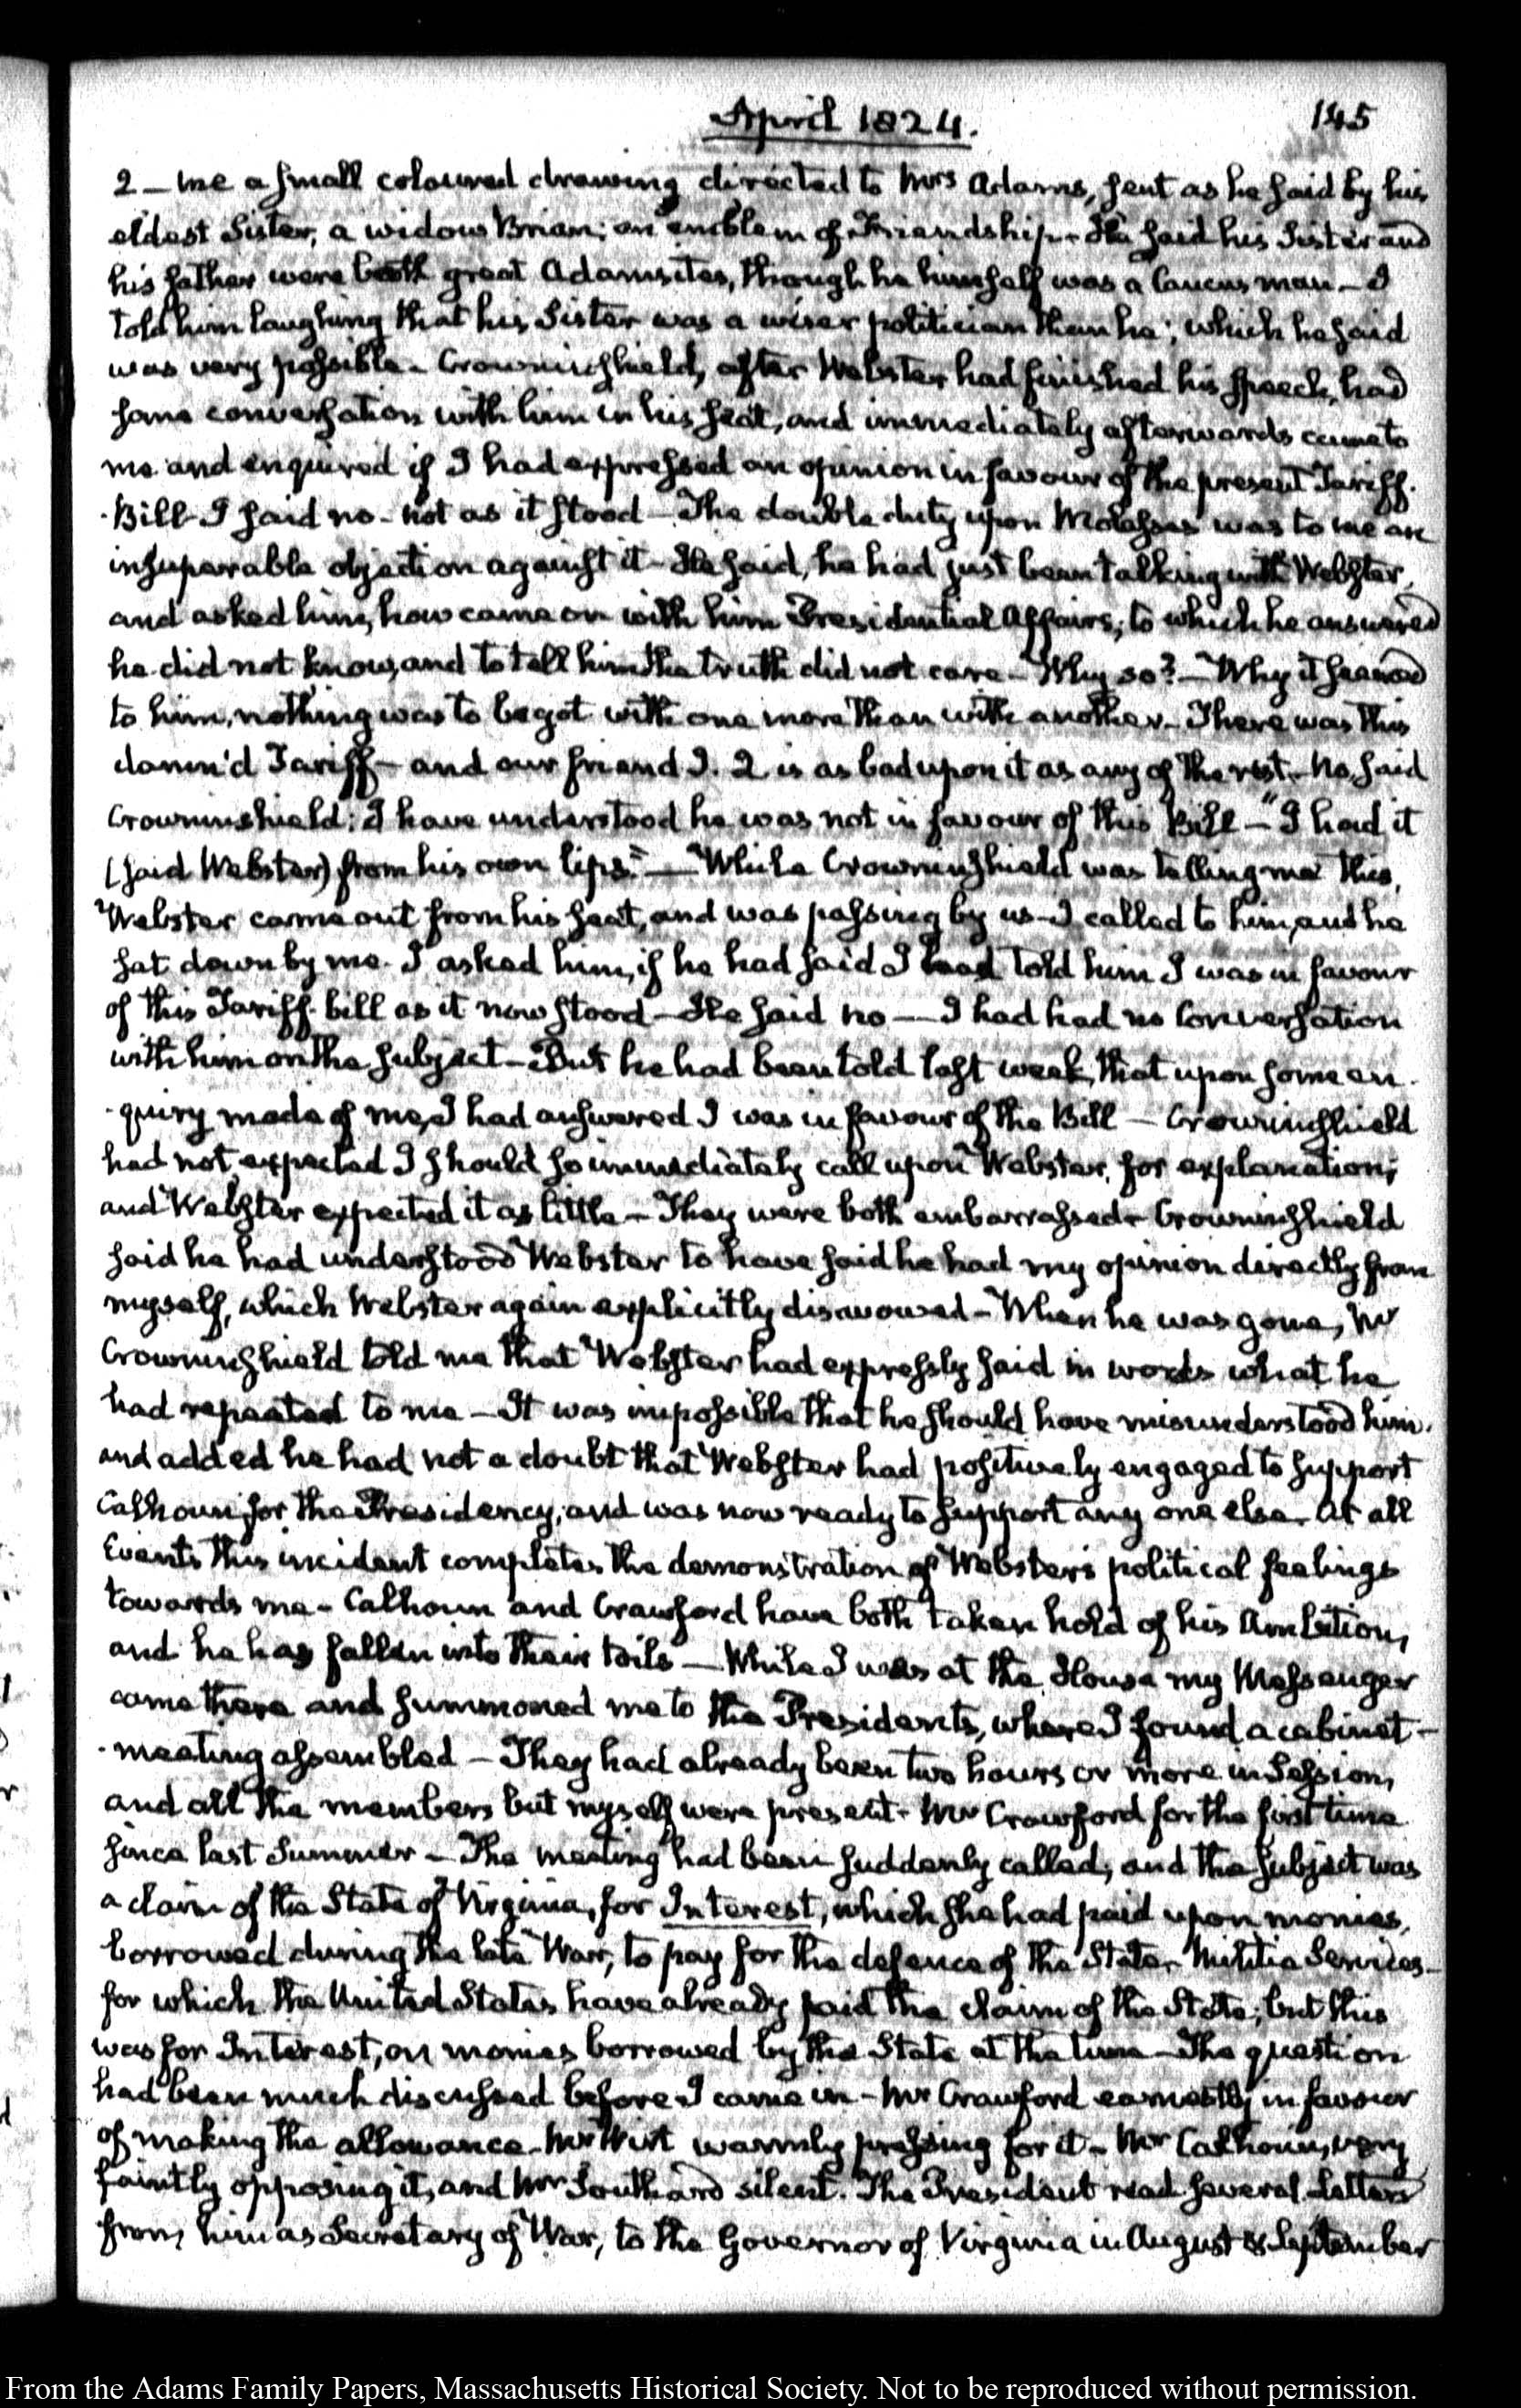 April 1824.
145
2 — me a small coloured drawing directed to Mrs Adams, sent as he said by his
eldest Sister, a widow Brian; an emblem of Friendship. He said his Sister and
his father were both great Adamsites, though he himself was a Caucus man — I
told him laughing that his Sister was a wiser politician than he; which he said
was very possible. Crowninshield, after Webster had finished his speech, had
some conversation with him in his seat, and immediately afterwards came to
me and enquired if I had expressed an opinion in favour of the present Tariff-
-Bill — I said no — not as it stood — The double duty upon Molasses was to me an
insuperable objection against it — He said, he had just been talking with Webster,
and asked him, how came on with him Presidential Affairs; to which he answered
he did not know, and to tell him the truth did not care — Why so? — Why it seemed
to him, nothing was to be got with one more than with another — There was this
damn'd Tariff — and our friend J. Q is as bad upon it as any of the rest — No, said
Crowninshield; I have understood he was not in favour of this Bill — "I had it
(said Webster) from his own lips." — While Crowninshield was telling me this,
Webster came out from his seat, and was passing by us — I called to him, and he
sat down by me. I asked him, if he had said I had told him I was in favour
of this Tariff-bill as it now stood — He said no — I had had no Conversation
with him on the subject — But he had been told last week, that upon some en-
-quiry made of me, I had answered I was in favour of the Bill — Crowninshield
had not expected I should so immediately call upon Webster, for explanation;
and Webster expected it as little — They were both embarrassed — Crowninshield
said he had understood Webster to have said he had my opinion directly from
myself, which Webster again explicitly disavowed — When he was gone, Mr
Crowninshield told me that Webster had expressly said in words what he
had repeated to me — It was impossible that he should have misunderstood him.
and added he had not a doubt that Webster had positively engaged to support
Calhoun for the Presidency, and was now ready to support any one else. At all
Events this incident completes the demonstration of Webster's political feelings
towards me — Calhoun and Crawford have both taken hold of his Ambition,
and he has fallen into their toils — While I was at the House my Messenger
came there and summoned me to the President's, where I found a cabinet-
-meeting assembled — They had already been two hours or more in Session,
and all the members but myself were present — Mr Crawford for the first time
since last Summer — The meeting had been suddenly called, and the subject was
a claim of the State of Virginia, for Interest, which she had paid upon monies,
borrowed during the late War, to pay for the defence of the State — Militia Services —
for which the United States have already paid the claim of the State; but this
was for Interest, on monies borrowed by the State at the time — The question
had been much discussed before I came in — Mr Crawford earnestly in favour
of making the allowance — Mr Wirt warmly pressing for it — Mr Calhoun, very
faintly opposing it, and Mr Southard silent. The President read several Letters
from him as Secretary of War, to the Governor of Virginia in August & September
From the Adams Family Papers, Massachusetts Historical Society. Not to be reproduced without permission.